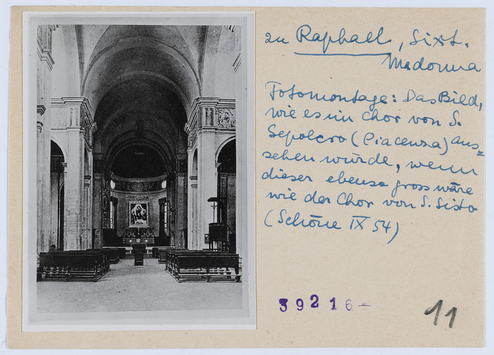 zu Raphael, Sixt.
Madonna
Fotomontage: Das Bild,
wie es im Chor von S.
Sepolcro (Piacenza) aus-
sehen würde, wenn
dieser ebenso gross wäre
wie der Chor von S. Sisto
(Schöne IX 54)
39216-
11